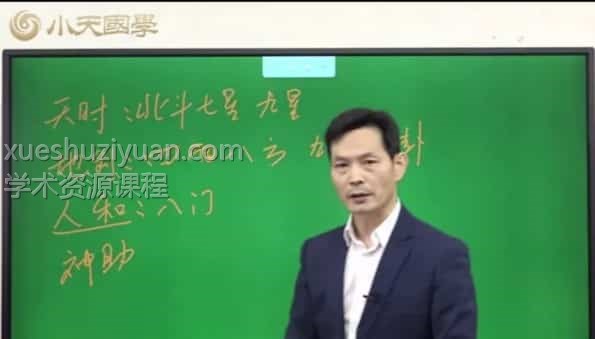 小天國學
天时:北斗七星 九星
xueshuziyuan.com
卦
学术资源课程
人和:八门
神助